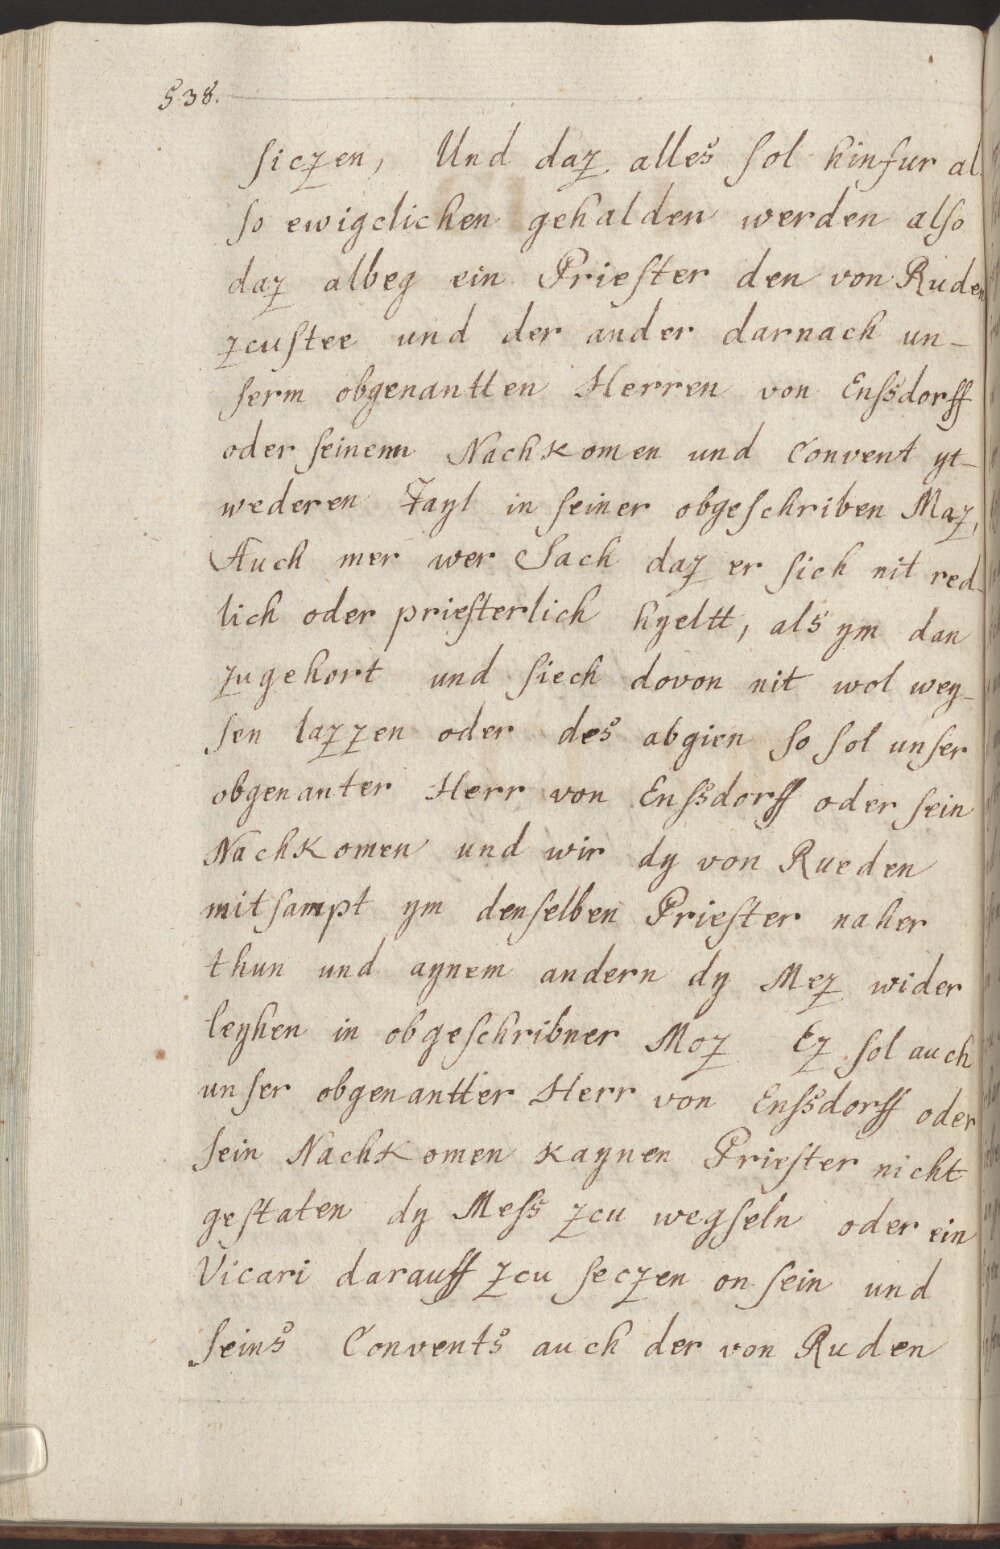 538.
siczen, Und daz alles sol hinfur al-
so ewigclichen gehalden werden also
daz albeg ein Priester den von Ruden
zcustee und der ander darnach un-
serm obgenantten Herren von Enssdorff
oder seinem Nachkomen und Convent yt-
wederen Tayl in seiner obgeschriben Maz,
Auch mer wer Sach daz er sich nit red-
lich oder priesterlich hyeltt, als ym dan
zugehort und siech dovon nit wol wey-
sen lazzen oder des abgien so sol unser
obgenanter Herr von Enssdorff oder sein
Nachkomen und wir dy von Rueden
mitsampt ym denselben Priester naher
thun und aynem andern dy Mez wider
leyhen in obgeschribner Moz Ez sol auch
unser obgenantter Herr von Enssdorff oder
sein Nachkomen kaynen Priester nicht
gestaten dy Mess zcu wegseln oder ein
Vicari darauff zcu seczen on sein und
seins Convents auch der von Ruden